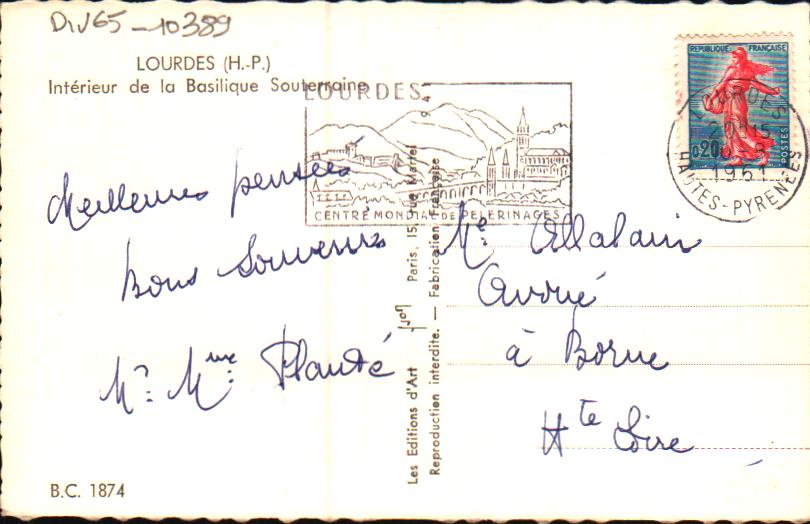 Div65-10389
LOURDES (H.-P.)
Intérieur de la Basilique Souterraine
LOURDES
CENTRE MONDIAL DE PELERINAGES
REPUBLIQUE FRANÇAISE
0,20
POSTES
LOURDES
1961
HAUTES-PYRENEES
Meilleures pensées
Bons Souvenirs
Mr. Mme. Plaudé
Les Editions d'Art Yvon Paris, 15, rue Martel
Reproduction interdite. — Fabrication Française
Me Allalain
Avoué
à Borne
Hte Loire
B.C. 1874